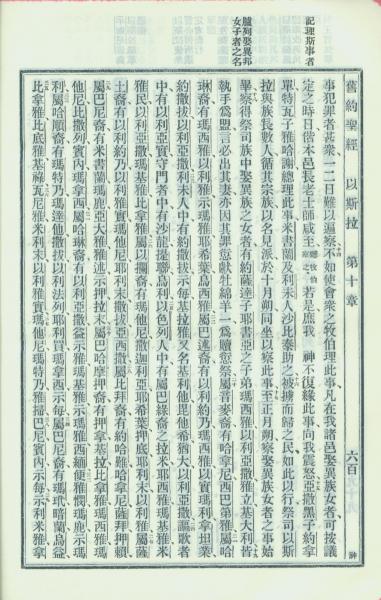 記理斯事者
臚列娶異邦
女子者之名
舊約聖經 以斯拉 第十章 六百
事犯罪者甚衆一二日難以遍察不如使會衆之牧伯理此事凡在我諸邑娶異族女者可按議
定之時日偕本邑長老士師咸至若是庶我 神不復緣此事向我震怒亞撒黑子約拿
單特瓦子雅哈謝總理此事米書蘭及利未人沙比泰助之被擄而歸之民如此以行祭司以斯
拉與族長數人循其宗族以名見派於十月朔同坐以察此事至正月朔察娶異族女者之事始
畢察得祭司族中娶異族之女者有約薩達子耶書亞之子弟瑪西雅以利亞撒雅立基大利皆
執手爲盟言必出其妻亦因其罪愆獻牡綿羊一爲贖愆祭屬音麥裔有哈拿尼西巴第雅屬哈
琳裔有瑪西雅以利雅示瑪雅耶希葉烏西雅屬巴述裔有以利約乃瑪西雅以實瑪利拿坦業
約撒拔以利亞撒利未人中有約撒拔示每基拉雅又名基利他毘他希猶大以利亞撒謳歌者
中有以利亞實守門者中有沙龍提聯烏利以色列人中有屬巴錄裔之拉米耶西雅瑪基雅米
雅民以利亞撒瑪基雅比拿雅屬以攔裔有瑪他尼撒迦利亞耶希葉押底耶利末以利雅屬薩
土裔有以利約乃以利雅實瑪他尼耶利末撒拔亞西撒屬比拜裔有約哈難哈拿尼薩拜押賴
屬巴尼裔有米書蘭瑪鹿亞大雅雅述示押拉末屬巴哈摩押裔有押拿基拉比拿雅瑪西雅瑪
他尼比撒列賓內瑪拿西屬哈琳裔有以利亞撒伊示雅瑪基雅示瑪雅西緬便雅憫瑪鹿示瑪
利屬哈順裔有瑪特乃瑪達他撒拔以利法列耶利買瑪拿西示每屬巴尼裔有瑪玳暗蘭烏益
比拿雅比底雅基祿瓦尼雅米利末以利雅實瑪他尼瑪特乃雅掃巴尼賓內示每示利米雅拿